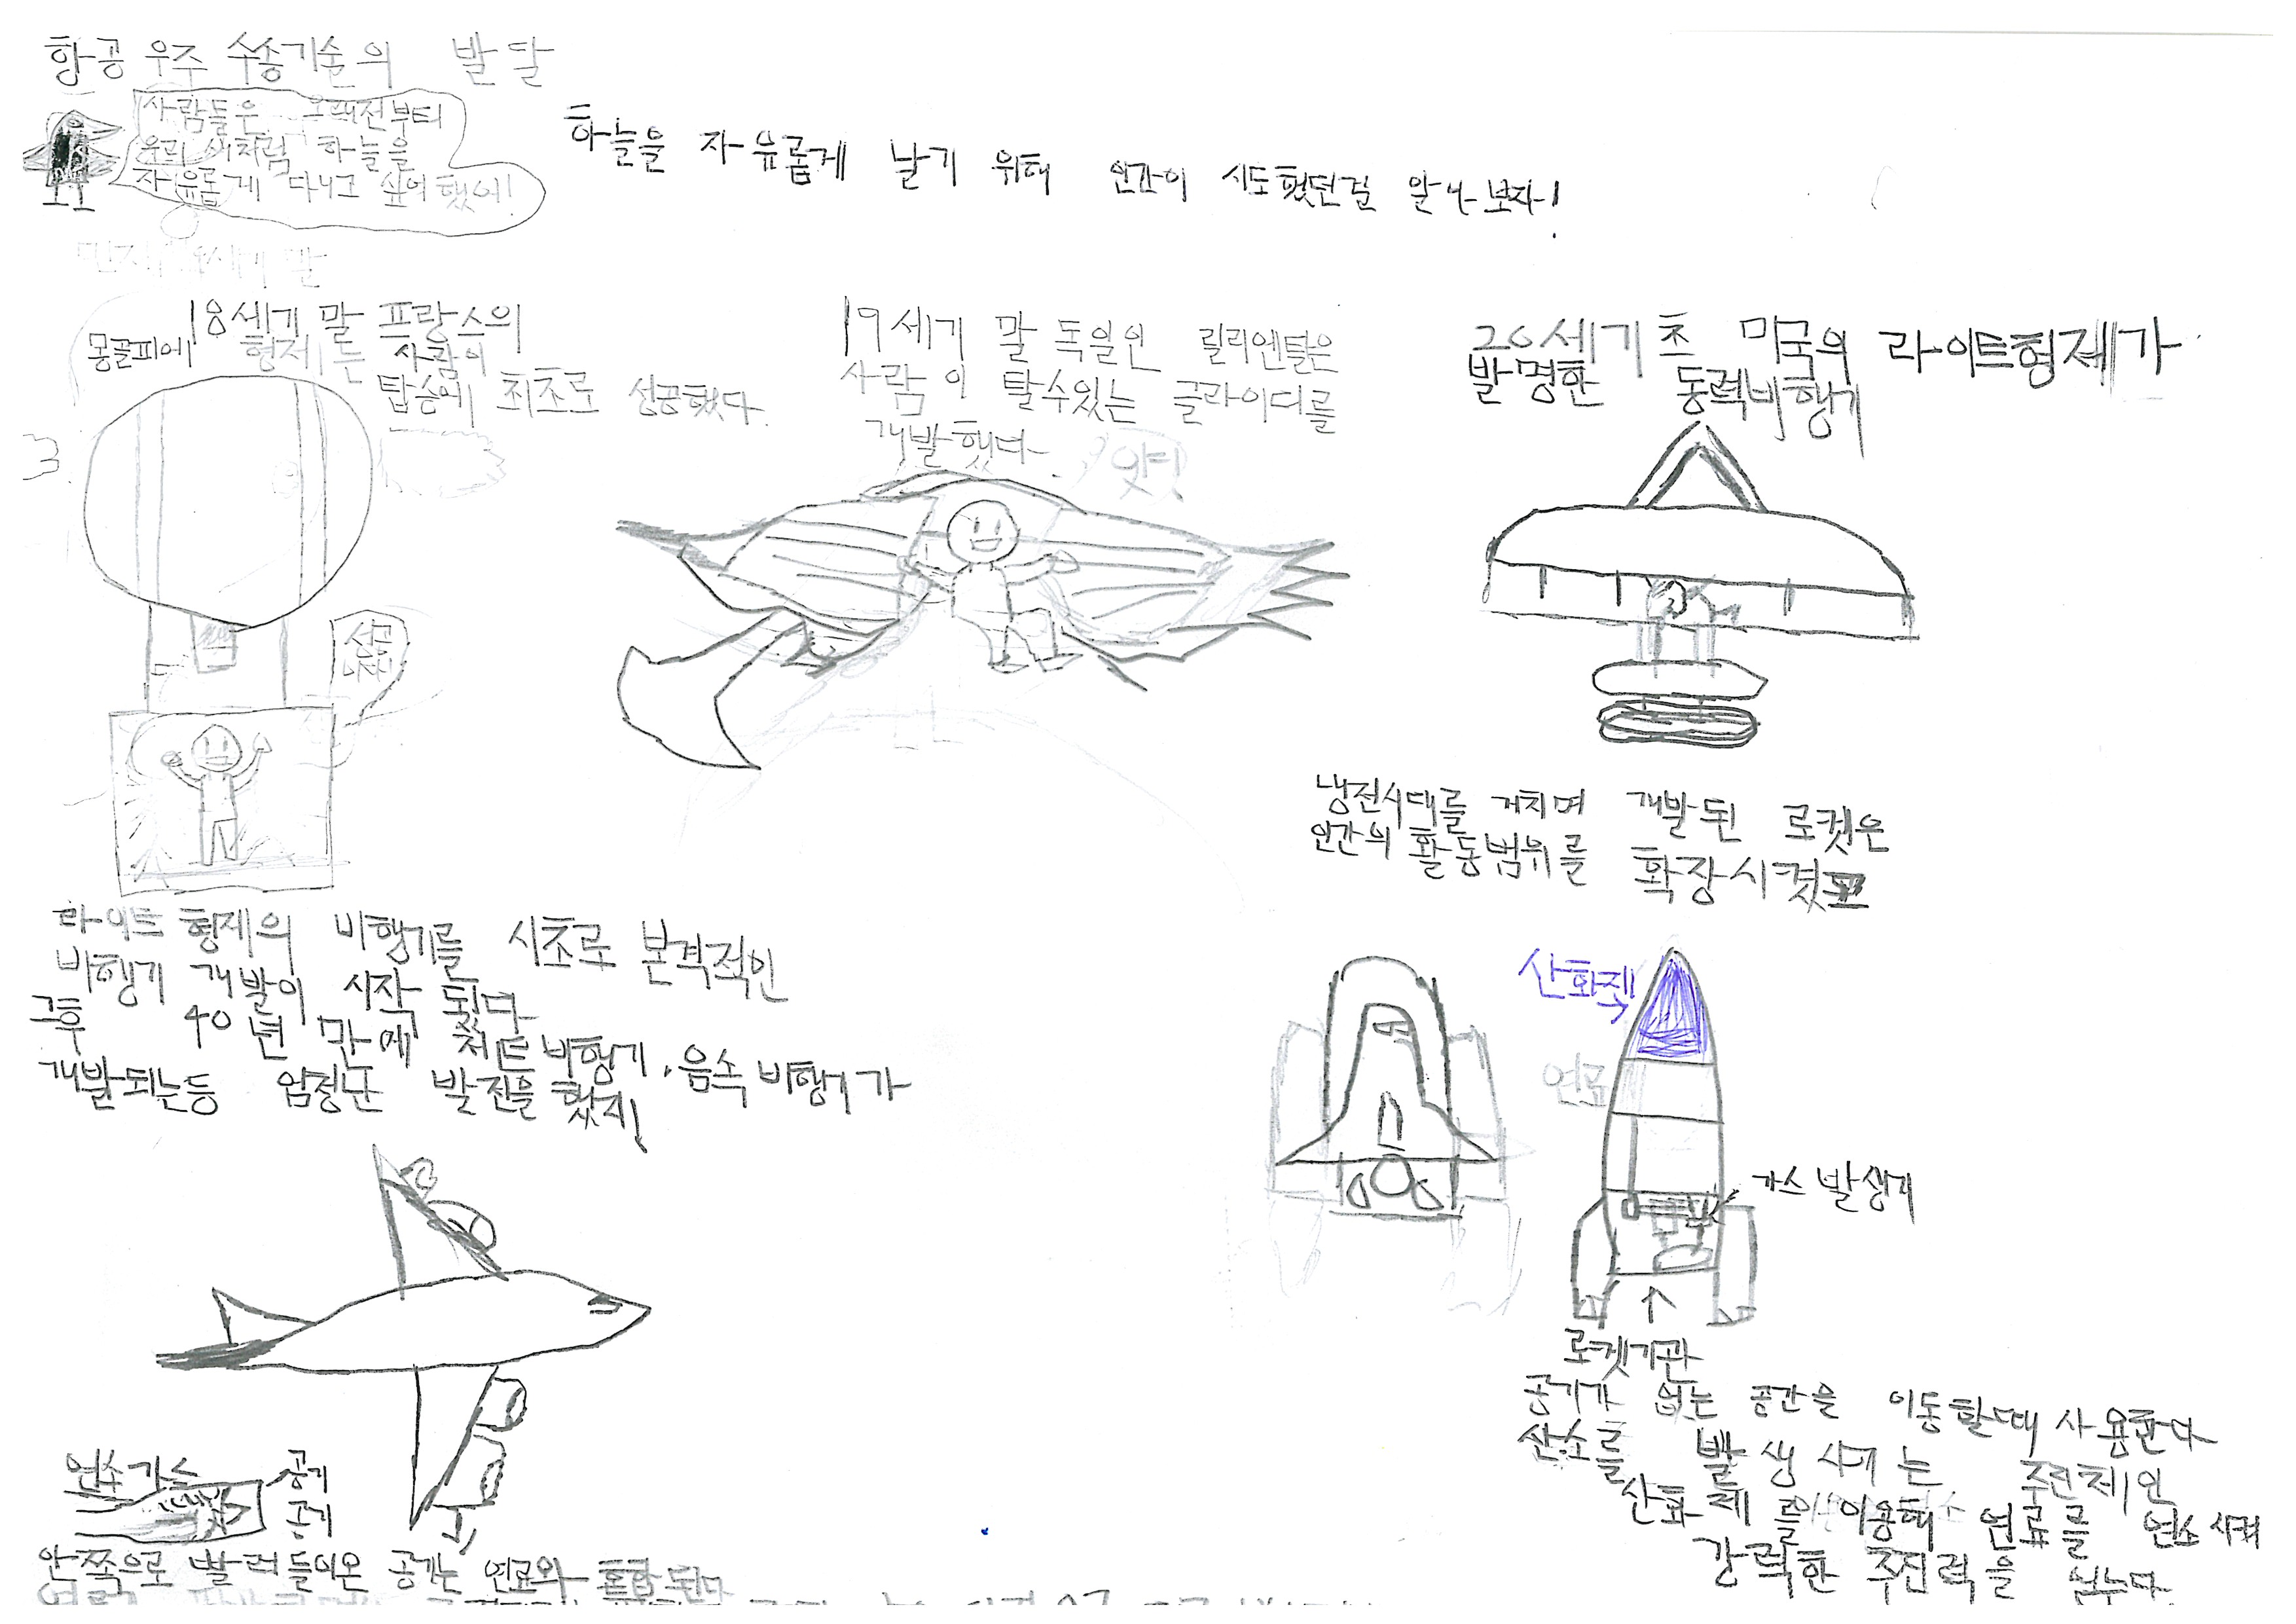 항공 우주 수송기술의 발달
사람들은 오래전부터
우리 새처럼 하늘을
자유롭게 다니고 싶어했어!
하늘을 자유롭게 날기 위해 인간이 시도했던걸 알아보자!
18세기 말 프랑스의
몽골피에 형제는 사람이
탑승에 최초로 성공했다.
성공
19세기 말 독일인 릴리엔탈은
사람이 탈수있는 글라이더를
개발했다.
20세기 초 미국의 라이트형제가
발명한 동력비행기
냉전시대를 거치며 개발된 로켓은
인간의 활동범위를 확장시켰
라이트 형제의 비행기를 시초로 본격적인
비행기 개발이 시작 됬다
그후 40년 만에 제트비행기, 음속 비행기가
개발되는등 엄청난 발전을 했지!
연소가스
공기
공기
안쪽으로 빨려들어온 공기는 연료와 혼합된다
산화제
연료
가스 발생기
로켓기관
공기가 없는 공간을 이동할때 사용한다
산소를 발생시키는 추진제인
산화제를 이용해 연료를 연소시켜
강력한 추진력을